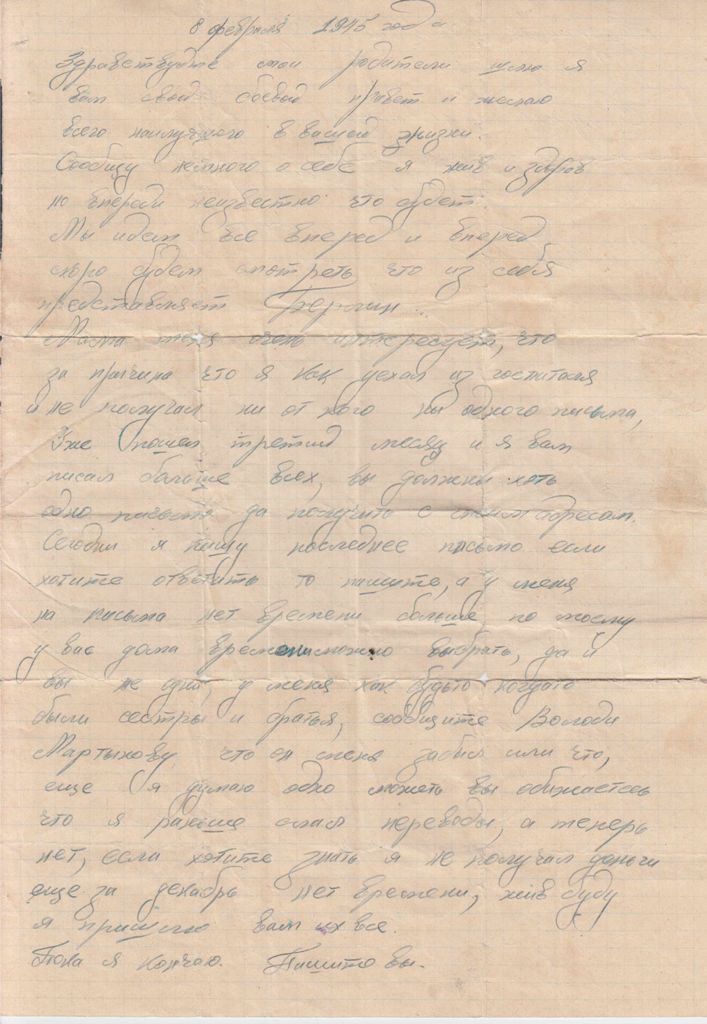 8 февраля 1945 года.
Здравствуйте мои родители шлю я
вам свой боевой привет и желаю
всего наилучшого в вашой жизни.
Сообщу немного о себе я жив и здоров
но впереди неизвестно что будет.
Мы идем все вперед и вперед
скоро будем смотреть что из себя
представляет Берлин...
Мама меня очень интересует, что
за причина что я как уехал из госпиталя
и не получал ни от кого ни одного письма,
Уже пошел третий месяц и я вам
писал больше всех, вы должны хоть
одно письмо да получить с моим адресом.
Сегодня я пишу последнее письмо если
хотите ответить то пишите, а у меня
на письма нет времени больше, по моему
у вас дома времени можно выбрать, да и
вы не одни, у меня как будьто когдато
были сестры и братья, сообщите Володи
Мартынову что он меня забыл или что,
еще я думаю одно может вы обижаетесь
что я раньше слал переводы, а теперь
нет, если хотите знать я не получал деньги
еще за декабрь нет времени, жив буду
я пришлю вам их все.
Пока я кончаю. Пишите вы.